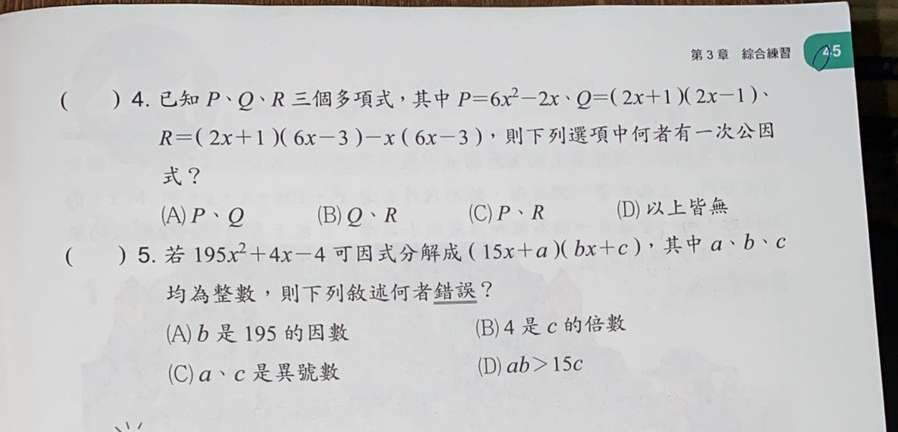 第3章 綜合練習 45
( ) 4. 已知 P、Q、R 三個多項式，其中 P=6x²-2x、Q=(2x+1)(2x-1)、
R=(2x+1)(6x-3)-x(6x-3)，則下列選項中何者有一次公因
式？
(A) P、Q (B) Q、R (C) P、R (D) 以上皆無
( ) 5. 若 195x²+4x-4 可因式分解成 (15x+a)(bx+c)，其中 a、b、c
均為整數，則下列敘述何者錯誤？
(A) b 是 195 的因數 (B) 4 是 c 的倍數
(C) a、c 是異號數 (D) ab>15c